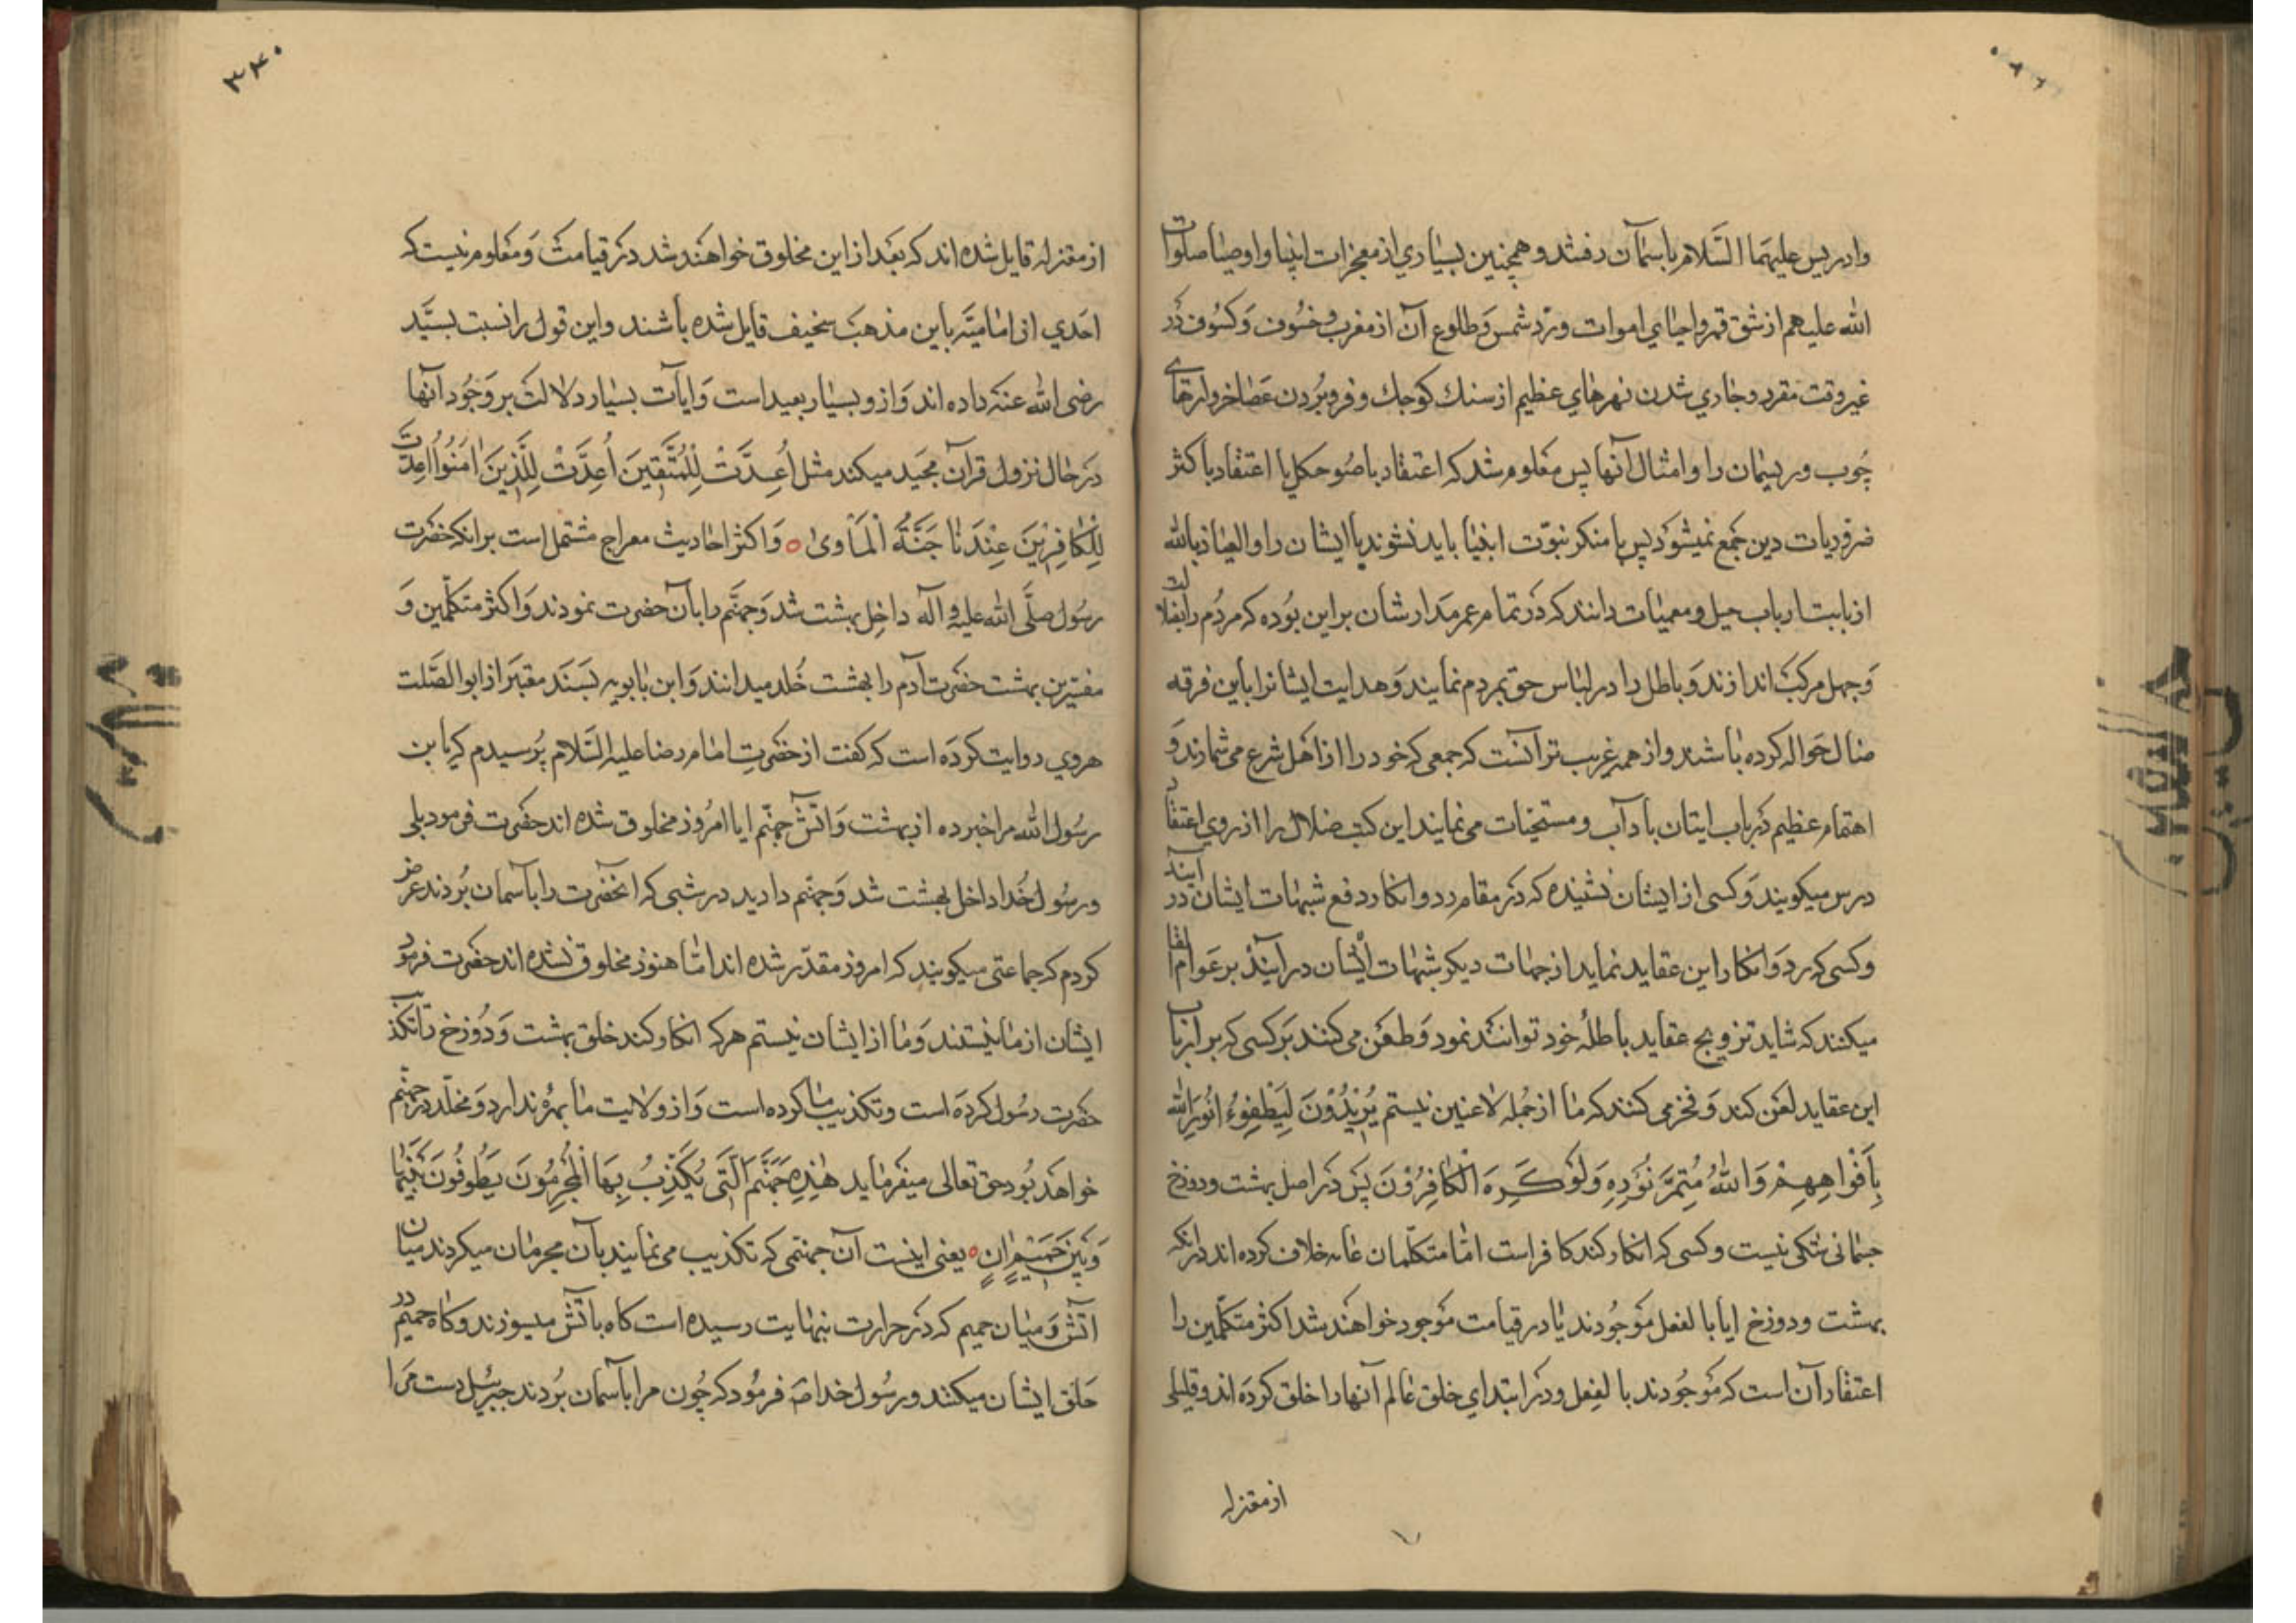 وادریس علیهما السَّلام باسمٰان رفتند و همچنین بسیاری از معجزات انبیا و اوصیا صلوات
الله علیهم از شق قمر و احیای اموات و ردّ شمس و طلوع آن از مغرب و خسُوف وکسُوف در
غیر وقت مقرر و جاری شدن نهرهای عظیم از سنك کوچك و فرو بُردن عَصٰا خروارهای
چُوب و ریسمان را و امثال آنها پس معلوم شد که اعتقاد باصُول حکما با اعتقاد باکثر
ضروریات دین جمع نمیشود پس یا منکر نبوّت انبیا باید نشوند یا ایشان را والعیاذ بالله
از بابت ارباب حیل و معمیات دانند که در تمام عمر مدارشان براین بُوده که مردُم را بضلالت
وجهل مرکب اندازند و باطل را در لباس حق بمردم نمایند و هدایت ایشانرا باین فرقه
ضال حواله کرده باشند و از همه غریب تر آنست که جمعی که خود را از اهل شرع می شمارند و
اهتمام عظیم در باب اتیان بآداب و مستحبات می نمایند این کتب ضلال را از روی اعتقاد
درس میکویند و کسی از ایشان نشنیده که در مقام رد و انکار و دفع شبهات ایشان در آیند
و کسی که رد و انکار این عقاید نماید از جهات دیکر شبهات ایشان در آیند بر عَوام القا
میکنند که شاید ترویج عقاید باطلهٔ خود توانند نمود و طعن می کنند بر کسی که بر ارباب
این عقاید لعن کند و فخر می کنند که ما از جُمله لاعنین نیستم یُرِیْدُوْنَ لِیُطْفِؤُا نُورَ الله
بِأَفْواهِهِمْ وَاللّٰهُ مُتِمُّ نُوْرِهِ وَلَوْ کَرِهَ الْکٰافِرُوْنَ پس در اصل بهشت و دوزخ
جسمانی شکی نیست و کسی که انکار کند کافر است امّا متکلّمان عامه خلاف کرده اند در انکه
بهشت و دوزخ ایا بالفعل موجُودند یا در قیامت موجود خواهند شد اکثر متکلمین را
اعتقاد آن است که موجُودند بالفعل و در ابتدای خلق عالم آنها را خلق کرده اند و قلیلی
از معتزله
۳۴۰
از معتزله قایل شده اند که بعد از این مخلوق خواهند شد در قیامت و معلوم نیست که
احدی از امامیّه باین مذهب سخیف قایل شده باشند و این قول را نسبت بسیّد
رضی الله عنه داده اند و از و بسیار بعید است و ایات بسیار دلالت بر وجُود آنها
در حال نزول قرآن مجید میکند مثل أُعِدَّتْ لِلْمُتَّقِینَ أُعِدَّتْ لِلَّذِینَ اٰمَنُوا اُعِدَّت
لِلْکٰافِرِیْنَ عِنْدَهٰا جَنَّةُ الْمَأْویٰ ه و اکثر احادیث معراج مشتمل است بر انکه حضرت
رسُول صلَّی الله علیه و آله داخل بهشت شد و جهنّم را بآن حضرت نمودند و اکثر متکلّمین و
مفسّرین بهشت حضرت آدم را بهشت خُلد میدانند و ابن بابویه بسند معتبر از ابوالصَّلت
هروی روایت کرده است که کفت از حضرت امام رضا علیه السَّلام پُرسیدم که یا بن
رسُول الله مرا خبر ده از بهشت و آتش جهنّم ایا امُروز مخلوق شده اند حضرت فرمود بلی
و رسُول خُدا داخل بهشت شد و جهنم را دید در شبی که انحضرت را بآسمان بُردند عرض
کردم که جماعتی میکویند که امروز مقدّر شده اند امّا هنوز مخلوق نشده اند حضرت فرمود
ایشان از ما نیستند و ما از ایشان نیستم هرکه انکار کند خلق بهشت و دُوزخ را تکذیب
حضرت رسُول کرده است و تکذیب ما کرده است و از ولایت ما بهره ندارد و مخلّد در جهنّم
خواهد بُود حق تعالی میفرماید هٰذِهِ جَهَنَّمُ الَّتِی یُکَذِّبُ بِهَا الْمُجْرِمُونَ یَطُوفُونَ بَیْنَهٰا
وَبَیْنَ حَمِیْمٍ اٰنٍ ه یعنی اینست آن جهنّمی که تکذیب می نمایند بآن مجرمان میکردند میان
آتش و میان حمیم که در حرارت بنهایت رسیده است کاه بآتش میسوزند و کاه حمیم در
حلق ایشان میکنند و رسُول خدا ص فرمُود که چُون مرا بآسمان بُردند جبرئیل دست مرا